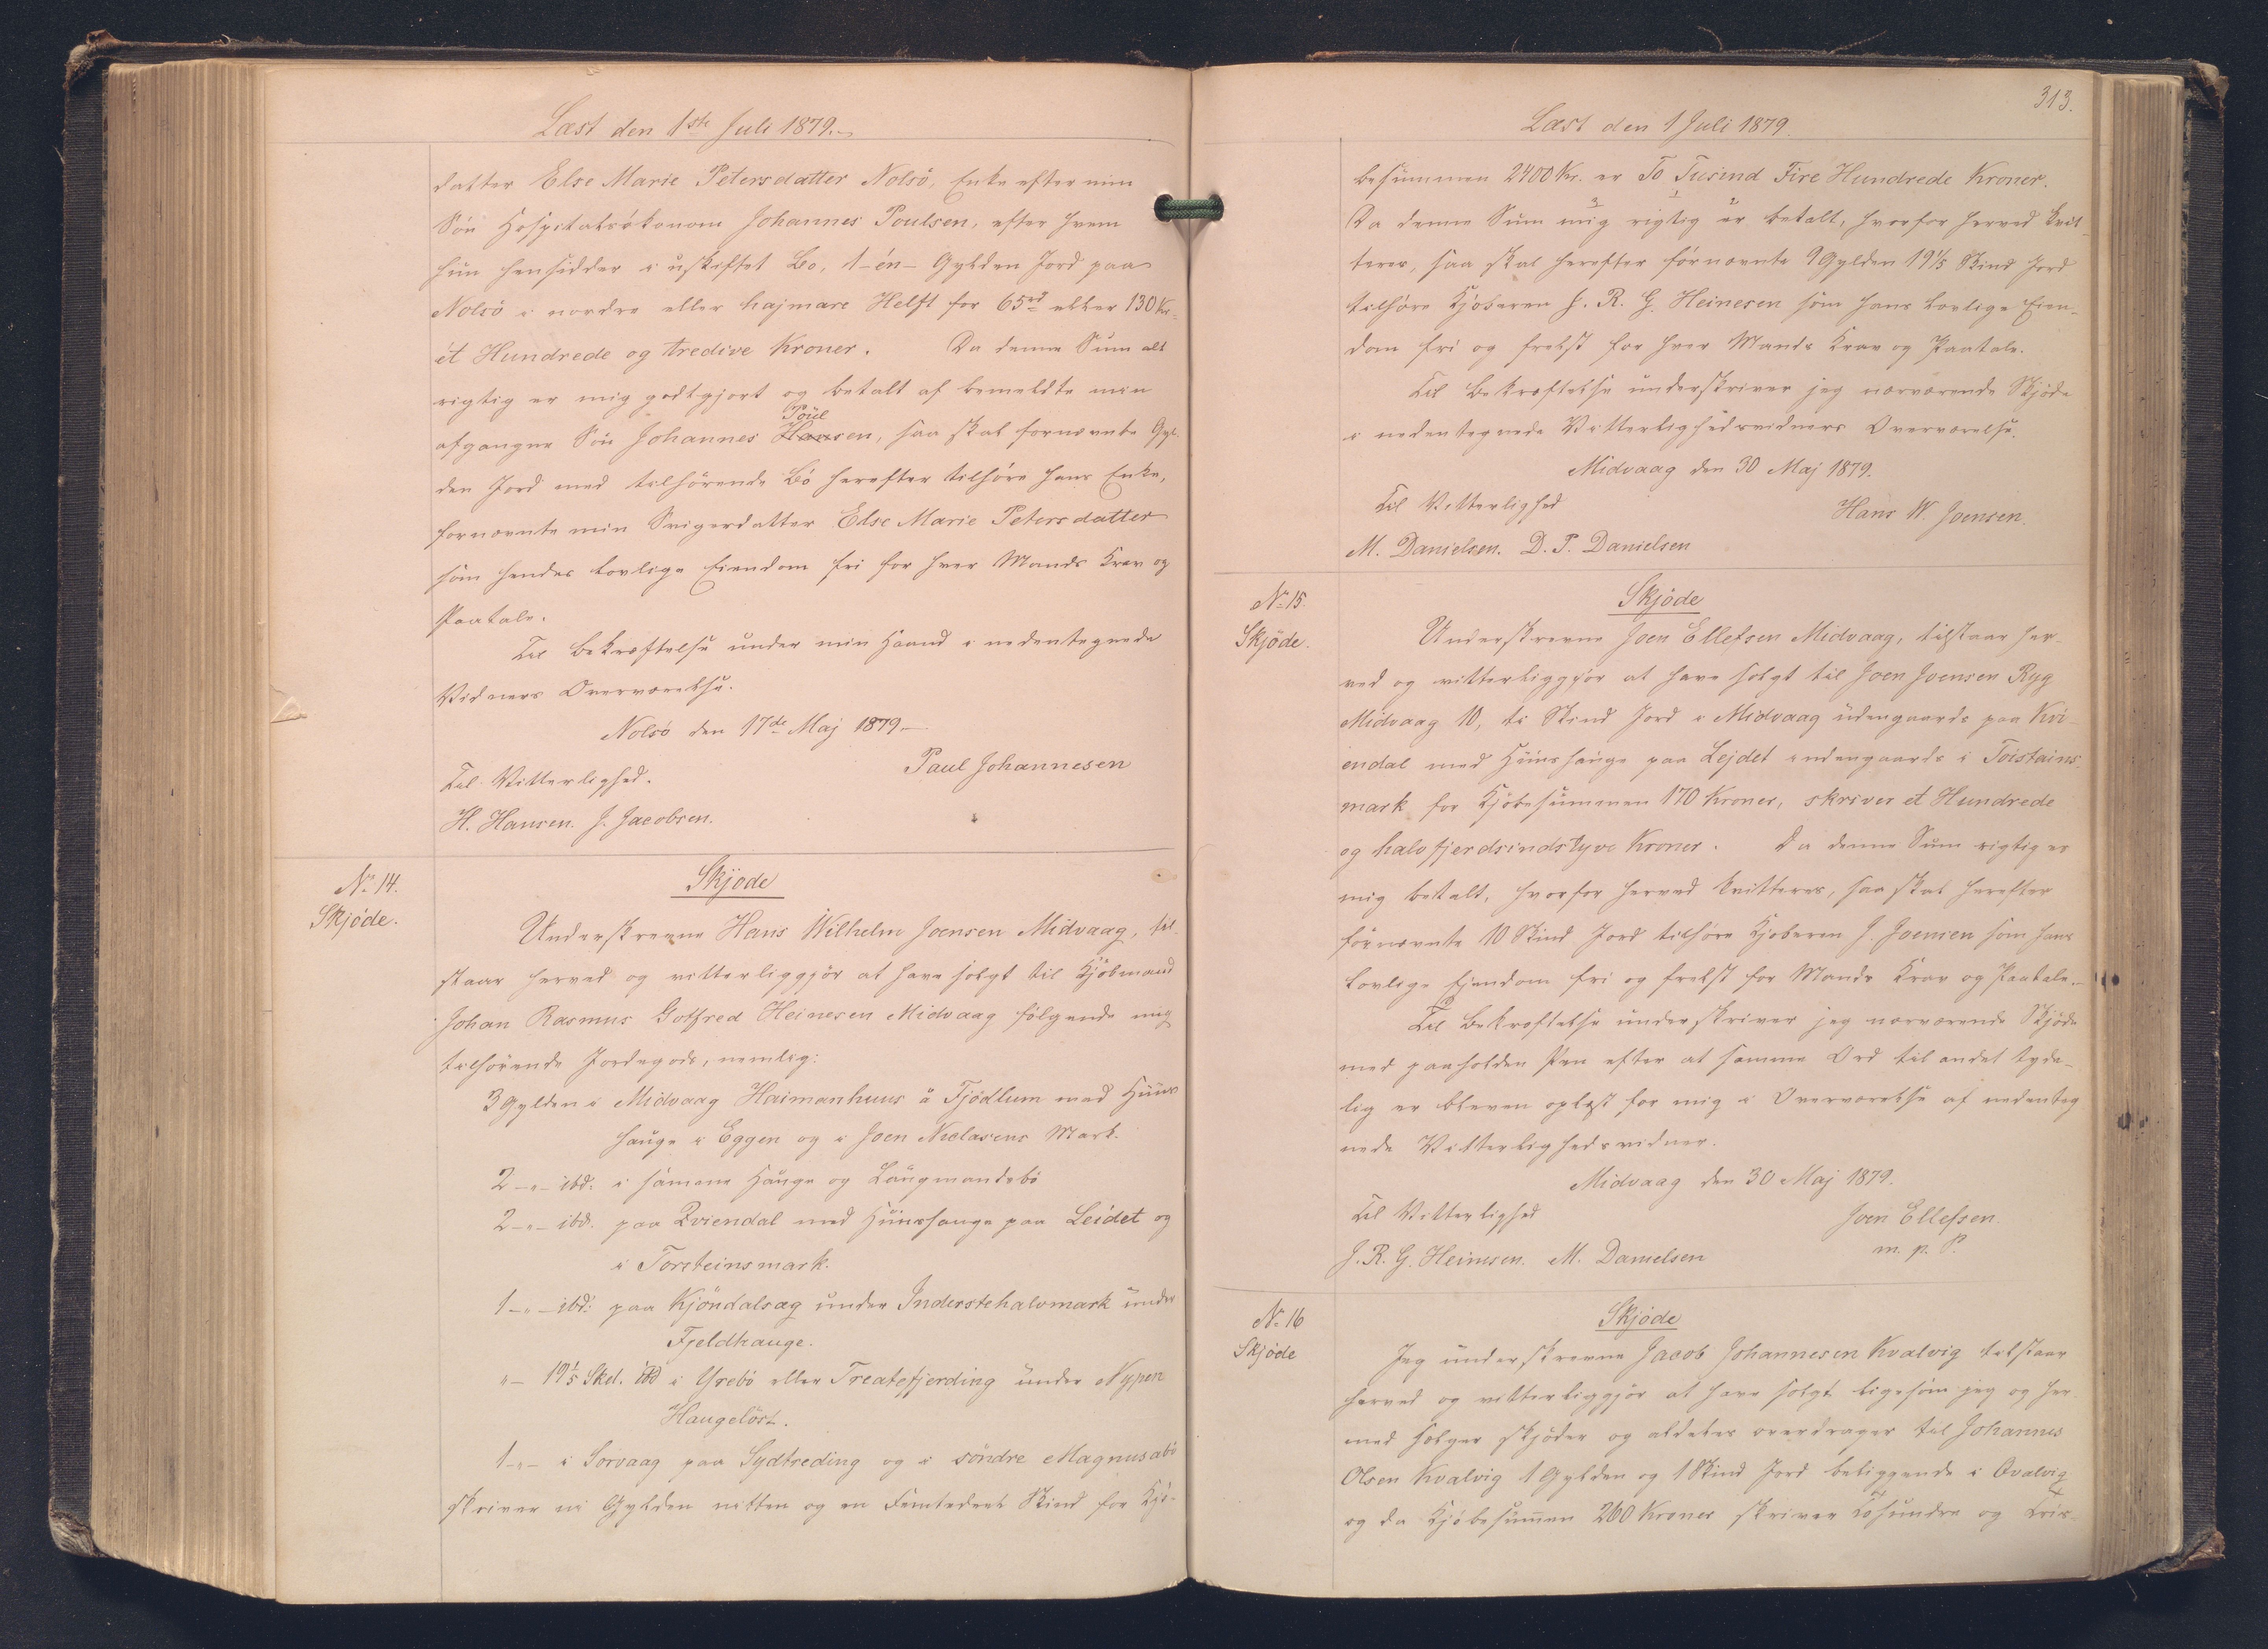 Læst den 1ste Juli 1879.
datter Else Marie Petersdatter Nolsö, Enke efter min
Sön Hospitalsökonom Johannes Poulsen, efter hvem
hun hensidder i uskiftet Bo, 1 - én - Gylden Jord paa
Nolsö i nordre eller hajmare Helft for 65rd eller 130 Kr.
ét Hundrede og tredive Kroner. Da denne Sum alt
rigtig er mig godtgjort og betalt af bemeldte min
Poul
afgangne Sön Johannes Hansen, saa skal fornævnte Gyl-
den Jord med tilhörende Bö herefter tilhöre hans Enke,
fornævnte min Svigerdatter Else Marie Petersdatter
som hendes lovlige Eiendom fri for hver Mands Krav og
Paatale.
Til Bekræftelse under min Haand i nedentegnede
Vidners Overværelse.
Nolsö den 17de Maj 1879.
Paul Johannesen
Til Vitterlighed.
H. Hansen. J. Jacobsen.
No 14.
Skjöde.
Skjöde
Underskrevne Hans Wilhelm Joensen Midvaag, til-
staar herved og vitterliggjör at have solgt til Kjöbmand
Johan Rasmus Gotfred Heinesen Midvaag fölgende mig
tilhörende Jordegods, nemlig:
3 Gylden i Midvaag Haimanhuus å Tjödlum med Huus
hauge i Eggen og i Joen Niclasens Mark.
2 -"- ibd: i samme Hauge og Laugmandsbö
2 -"- ibd. paa Qviendal med Huushauge paa Leidet og
i Torsteinsmark.
1 -"- ibd: paa Kjöndalsæg under Inderstehalvmark under
Fjeldhauge.
"- 19 1/5 Skd. ibd i Yrebö eller Treatefjerding under Nypen
Haugelöst.
1 -"- i Sorvaag paa Sydtreding og i söndre Magnusabö
skriver ni Gylden nitten og en Femtedeel Skind for Kjö-
313.
Læst den 1 Juli 1879.
besummen 2400 Kr. er To Tusind Fire Hundrede Kroner.
Da denne Sum mig rigtig er betalt, hvorfor herved kvit-
teres, saa skal herefter förnævnte 9 Gylden 19 1/5 Skind Jord
tilhöre Kjöberen J. R. G. Heinesen som hans lovlige Eien-
dom fri og frelst for hver Mands Krav og Paatale.
Til Bekræftelse underskriver jeg nærværende Skjöde
i nedentegnede Vitterlighedsvidners Overværelse.
Midvaag den 30 Maj 1879.
Til Vitterlighed
Hans W. Joensen.
M. Danielsen. D. P. Danielsen
No 15.
Skjöde.
Skjöde
Underskrevne Joen Ellefsen Midvaag, tilstaar her-
ved og vitterliggjör at have solgt til Joen Joensen Ryg
Midvaag 10, ti Skind Jord i Midvaag udengaards paa Kvi-
endal med Huushauge paa Lejdet indengaards i Toistains-
mark for Kjöbesummen 170 Kroner, skriver et Hundrede
og halvfjerdsindstyve Kroner. Da denne Sum rigtig er
mig betalt, hvorfor herved kvitteres, saa skal herefter
förnævnte 10 Skind Jord tilhöre Kjöberen J. Joensen som hans
lovlige Ejendom fri og frelst for Mands Krav og Paatale.
Til Bekræftelse underskriver jeg nærværende Skjöde
med paaholden Pen efter at samme Ord til andet tyde-
lig er bleven oplæst for mig i Overværelse af nedenteg
nede Vitterlighedsvidner.
Midvaag den 30 Maj 1879.
Til Vitterlighed
Joen Ellefsen
m. p. P.
J. R. G. Heinesen. M. Danielsen
No 16
Skjöde
Skjöde
Jeg underskrevne Jacob Johannesen Kvalvig tilstaar
herved og vitterliggjör at have solgt ligesom jeg og her-
med sælger skjöder og aldeles overdrager til Johannes
Olsen Kvalvig 1 Gylden og 1 Skind Jord beliggende i Qvalvig
og da Kjöbesummen 260 Kroner skriver Tohundre og tris-